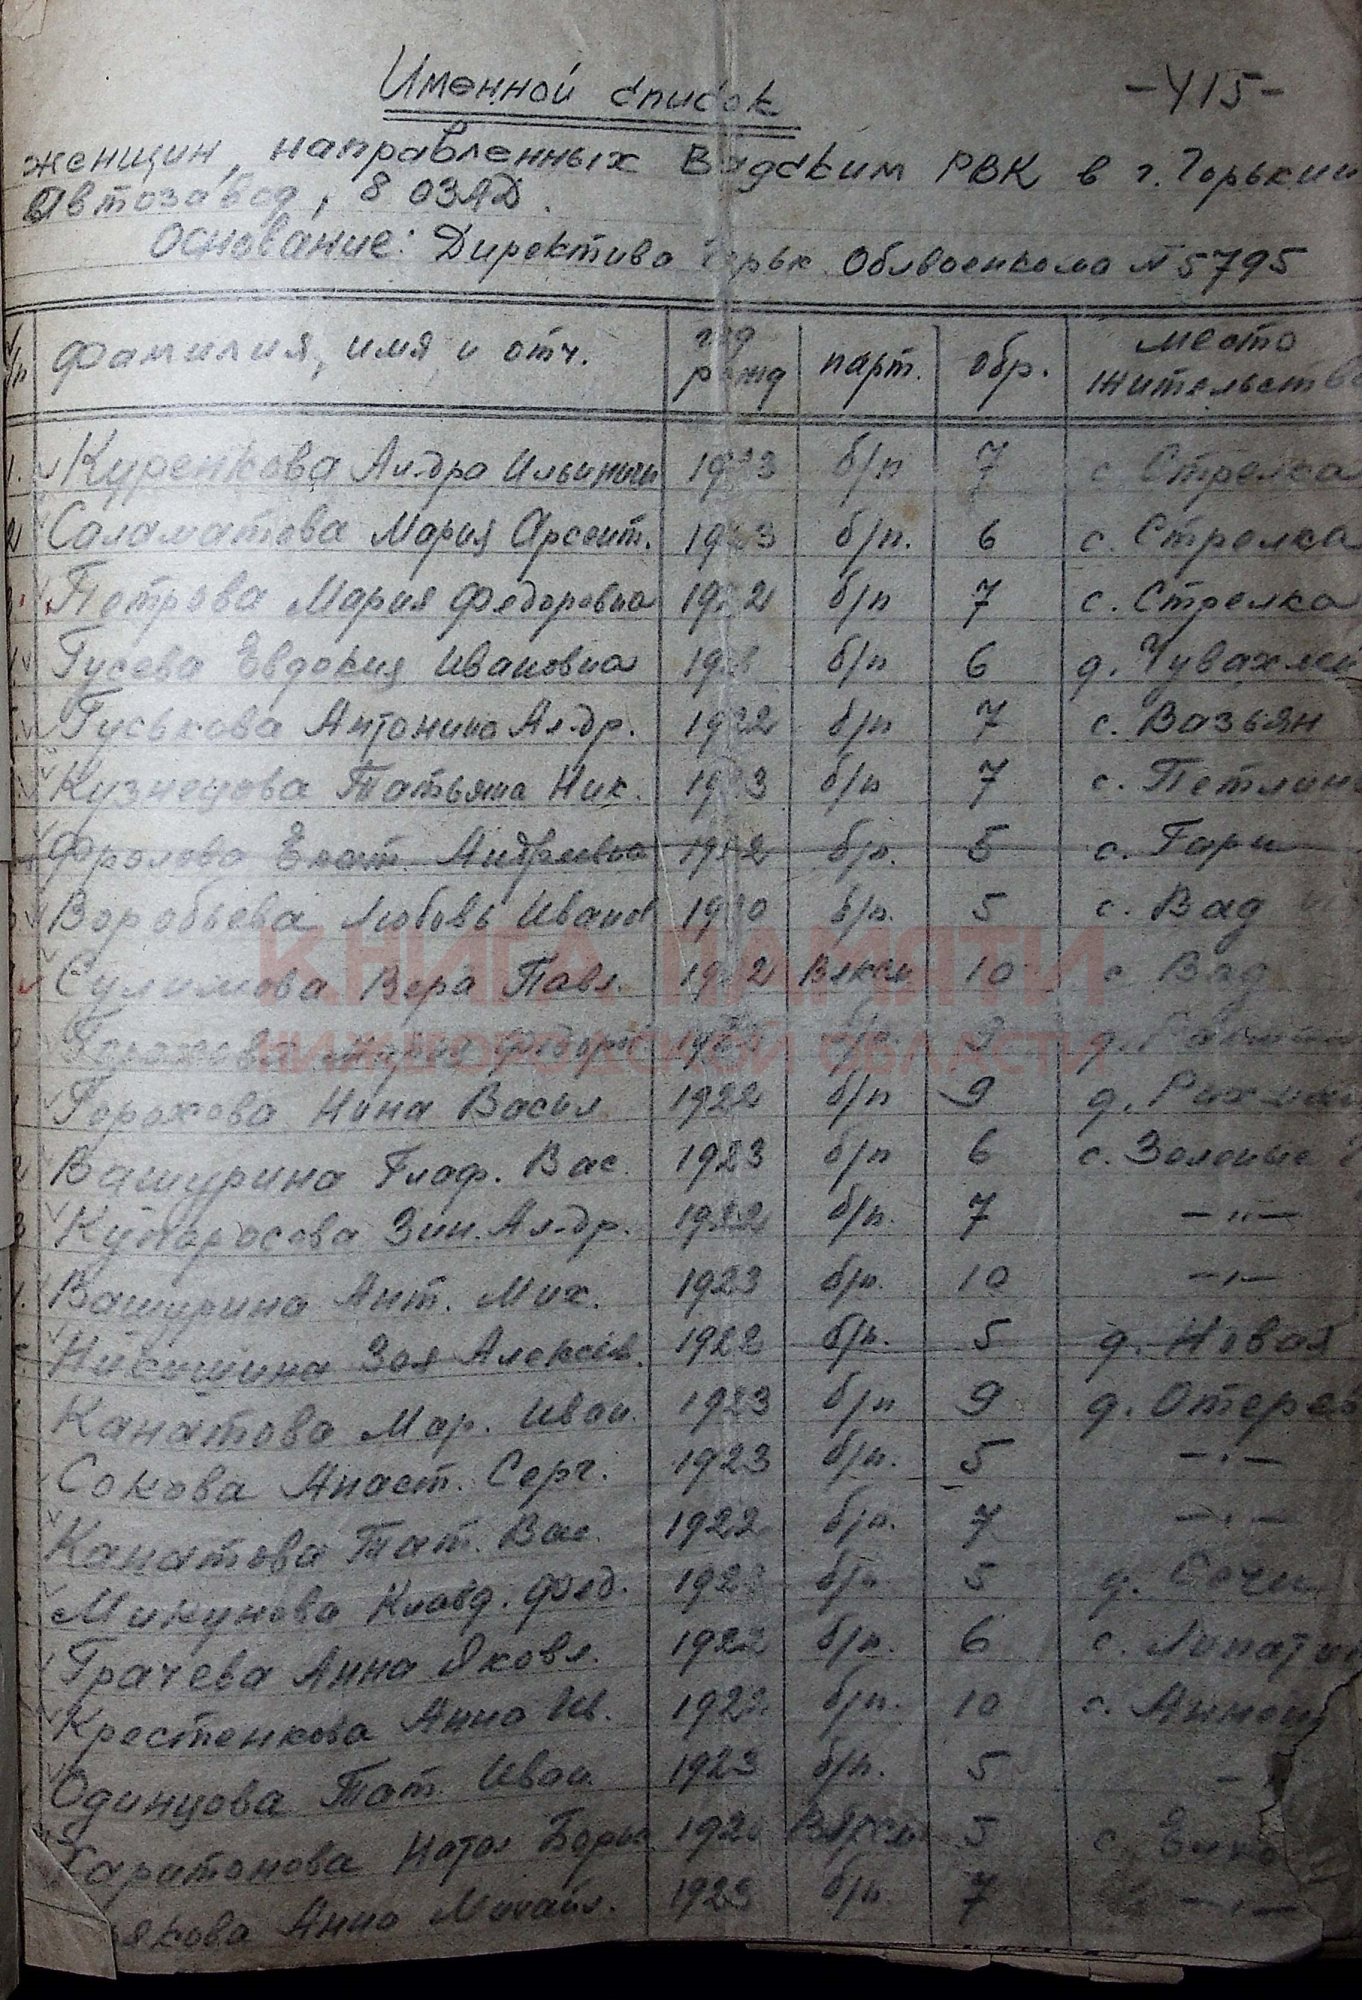 Именной список
-415-
женщин, направленных Вадским РВК в г. Горький
Автозавод, 8 ОЗАД.
Основание: Директива Горьк. Облвоенкома № 5795
п/п фамилия, имя и отч. год рожд парт. обр. место жительства
1. Куренкова Ал-дра Ильинич 1923 б/п 7 с. Стрелка
2 Саламатова Мария Арсент. 1923 б/п. 6 с. Стрелка
Петрова Мария Федоровна 1922 б/п 7 с. Стрелка
Гусева Евдокия Ивановна б/п 6 д. Чувахлей
Гуськова Антонина Ал-др. 1922 б/п 7 с. Вазьян
Кузнецова Татьяна Ник. 1923 б/п 7 с. Петлин
Фролова Екат. Андреевна 1922 б/п. 5 с. Гари
Воробьева Любовь Иванов 1920 б/п. 5 с. Вад
Сулимова Вера Павл. 1922 Влксм 10 с Вад
КНИГА ПАМЯТИ
Мария Федор б/п. 9 д.
НИЖЕГОРОДСКОЙ ОБЛАСТИ
Горохова Нина Васил 1922 б/п 9 д.
Вашурина Глаф. Вас. 1923 б/п 6 с. Зеленые
3 Зин. Ал-др. 1922 б/п. 7 -"-
Вашурина Ант. Мих. 1923 б/п. 10 -"-
Никошина Зоя Алексеев. 1922 б/п. 5 д. Новая
Канатова Мар. Иван. 1923 б/п 9 д. Отерев
Сокова Анаст. Серг. 1923 б/п. 5 -"-
Канатова Тат. Вас. 1922 б/п. 7 -"-
Микунова Клавд. Фед. б/п 5 д. Сочи
Грачева Анна Яковл. 1922 б/п. 6 с.
Крестенкова Анна Ив. б/п. 10 с.
Одинцова Тат. Иван. 1923 б/п. 5 -
Харитонова Натал Борис 5 с.
якова Анна Михайл. 1923 б/п. 7 -"-